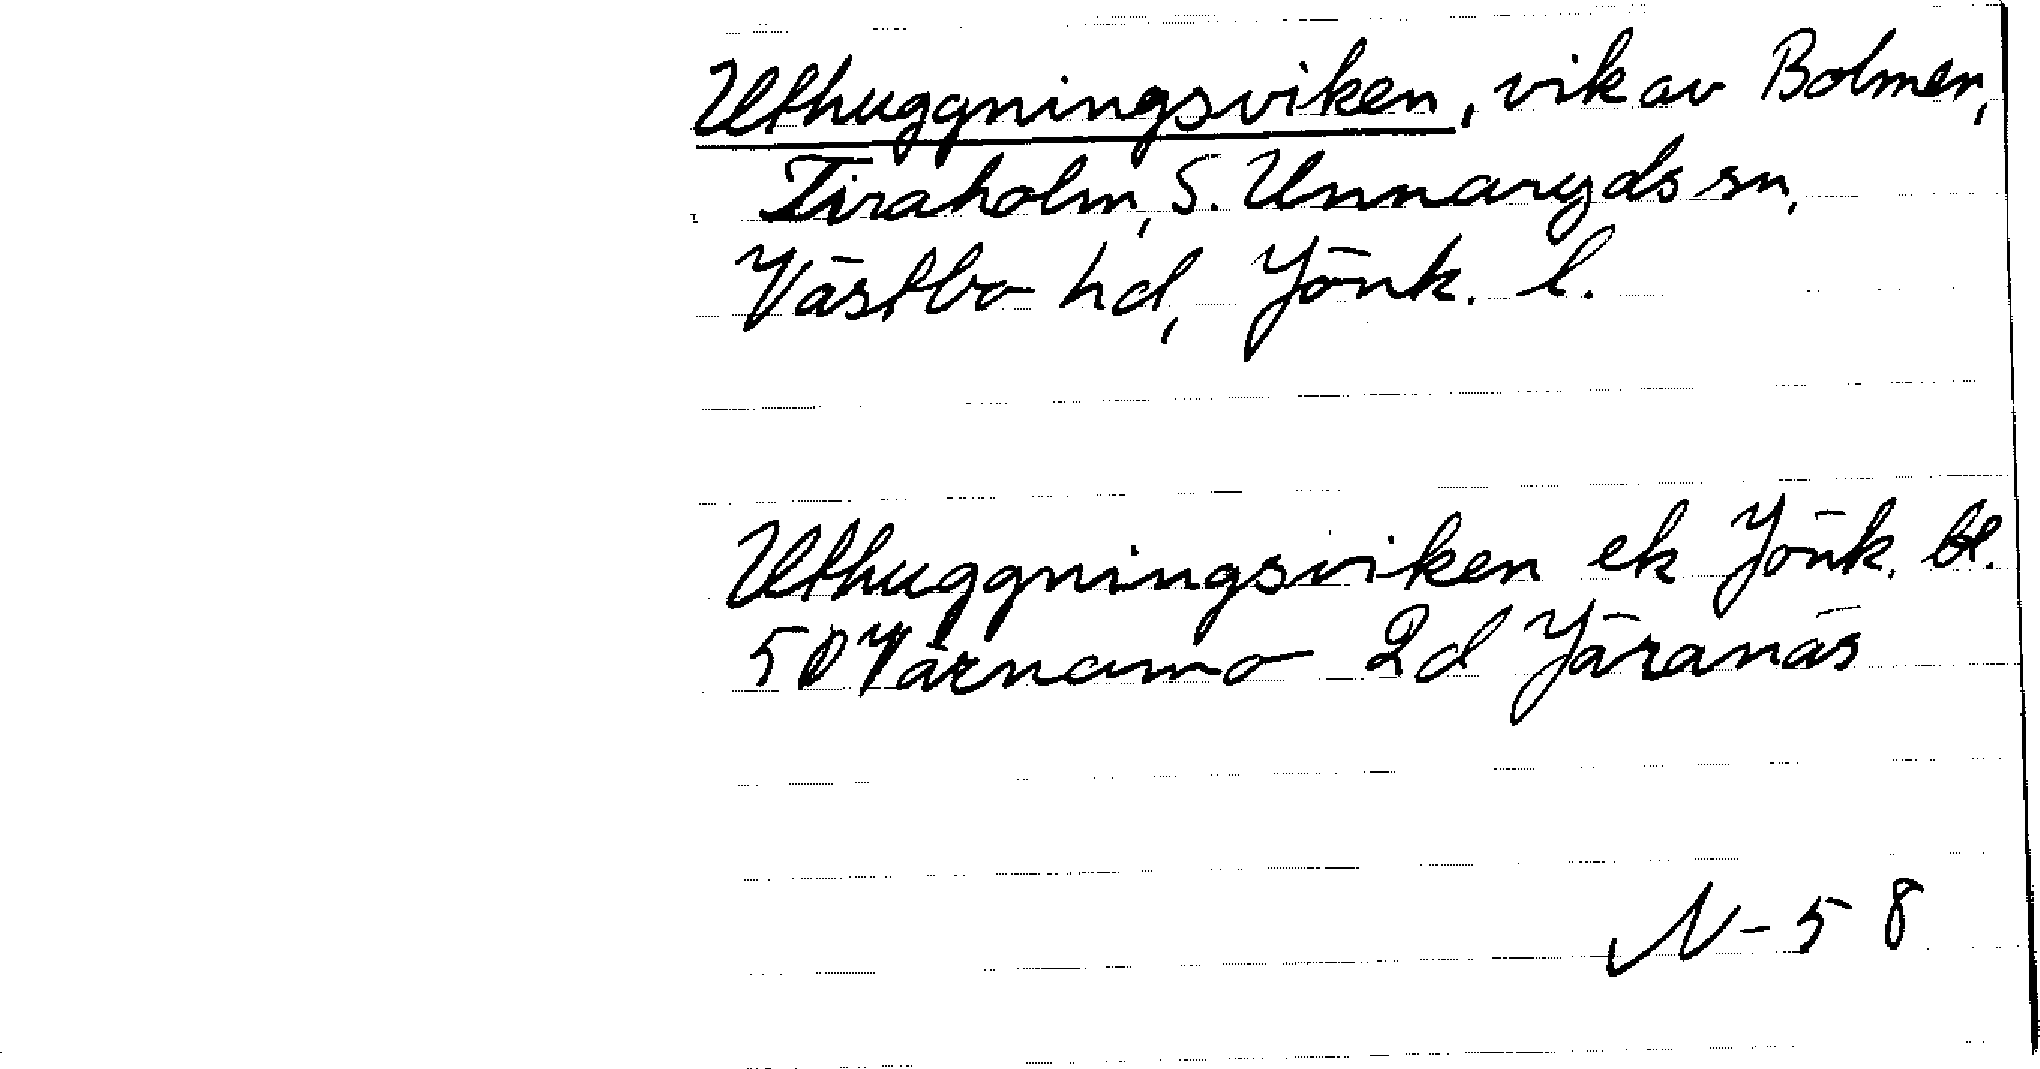 Uthuggningsviken, vik av Bolmen,
Tiraholm, S. Unnaryds sn,
Västbo hd, Jönk. l.
Uthuggningsviken ek Jönk. bl.
50 Värnamo 2d Järanäs
N-58